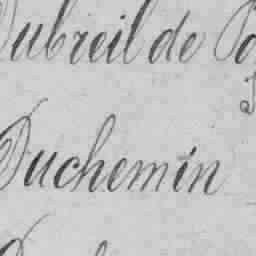 Dubreil de
Duchemin